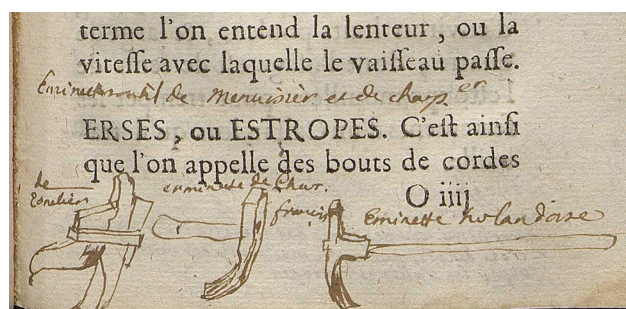 terme l'on entend la lenteur, ou la
vitesse avec laquelle le vaiſſeau paſſe.
Erminette outil de menuisier et de charp er
ERSES, ou ESTROPES. C'eſt ainſi
que l'on appelle des bouts de cordes
O iiij
de Tonelier
erminette de Char.
françoise
Eminette holandoise